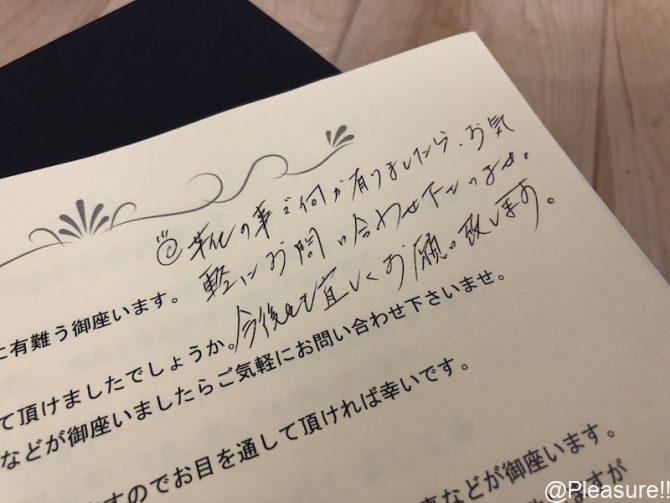 靴の事で何か有りましたら、お気
軽にお問い合わせ下さいませ。
今後とも宜しくお願い致します。
に有難う御座います。
て頂けましたでしょうか。
などが御座いましたらご気軽にお問い合わせ下さいませ。
ますのでお目を通して頂ければ幸いです。
などが御座います。
ますが
@Pleasure!!